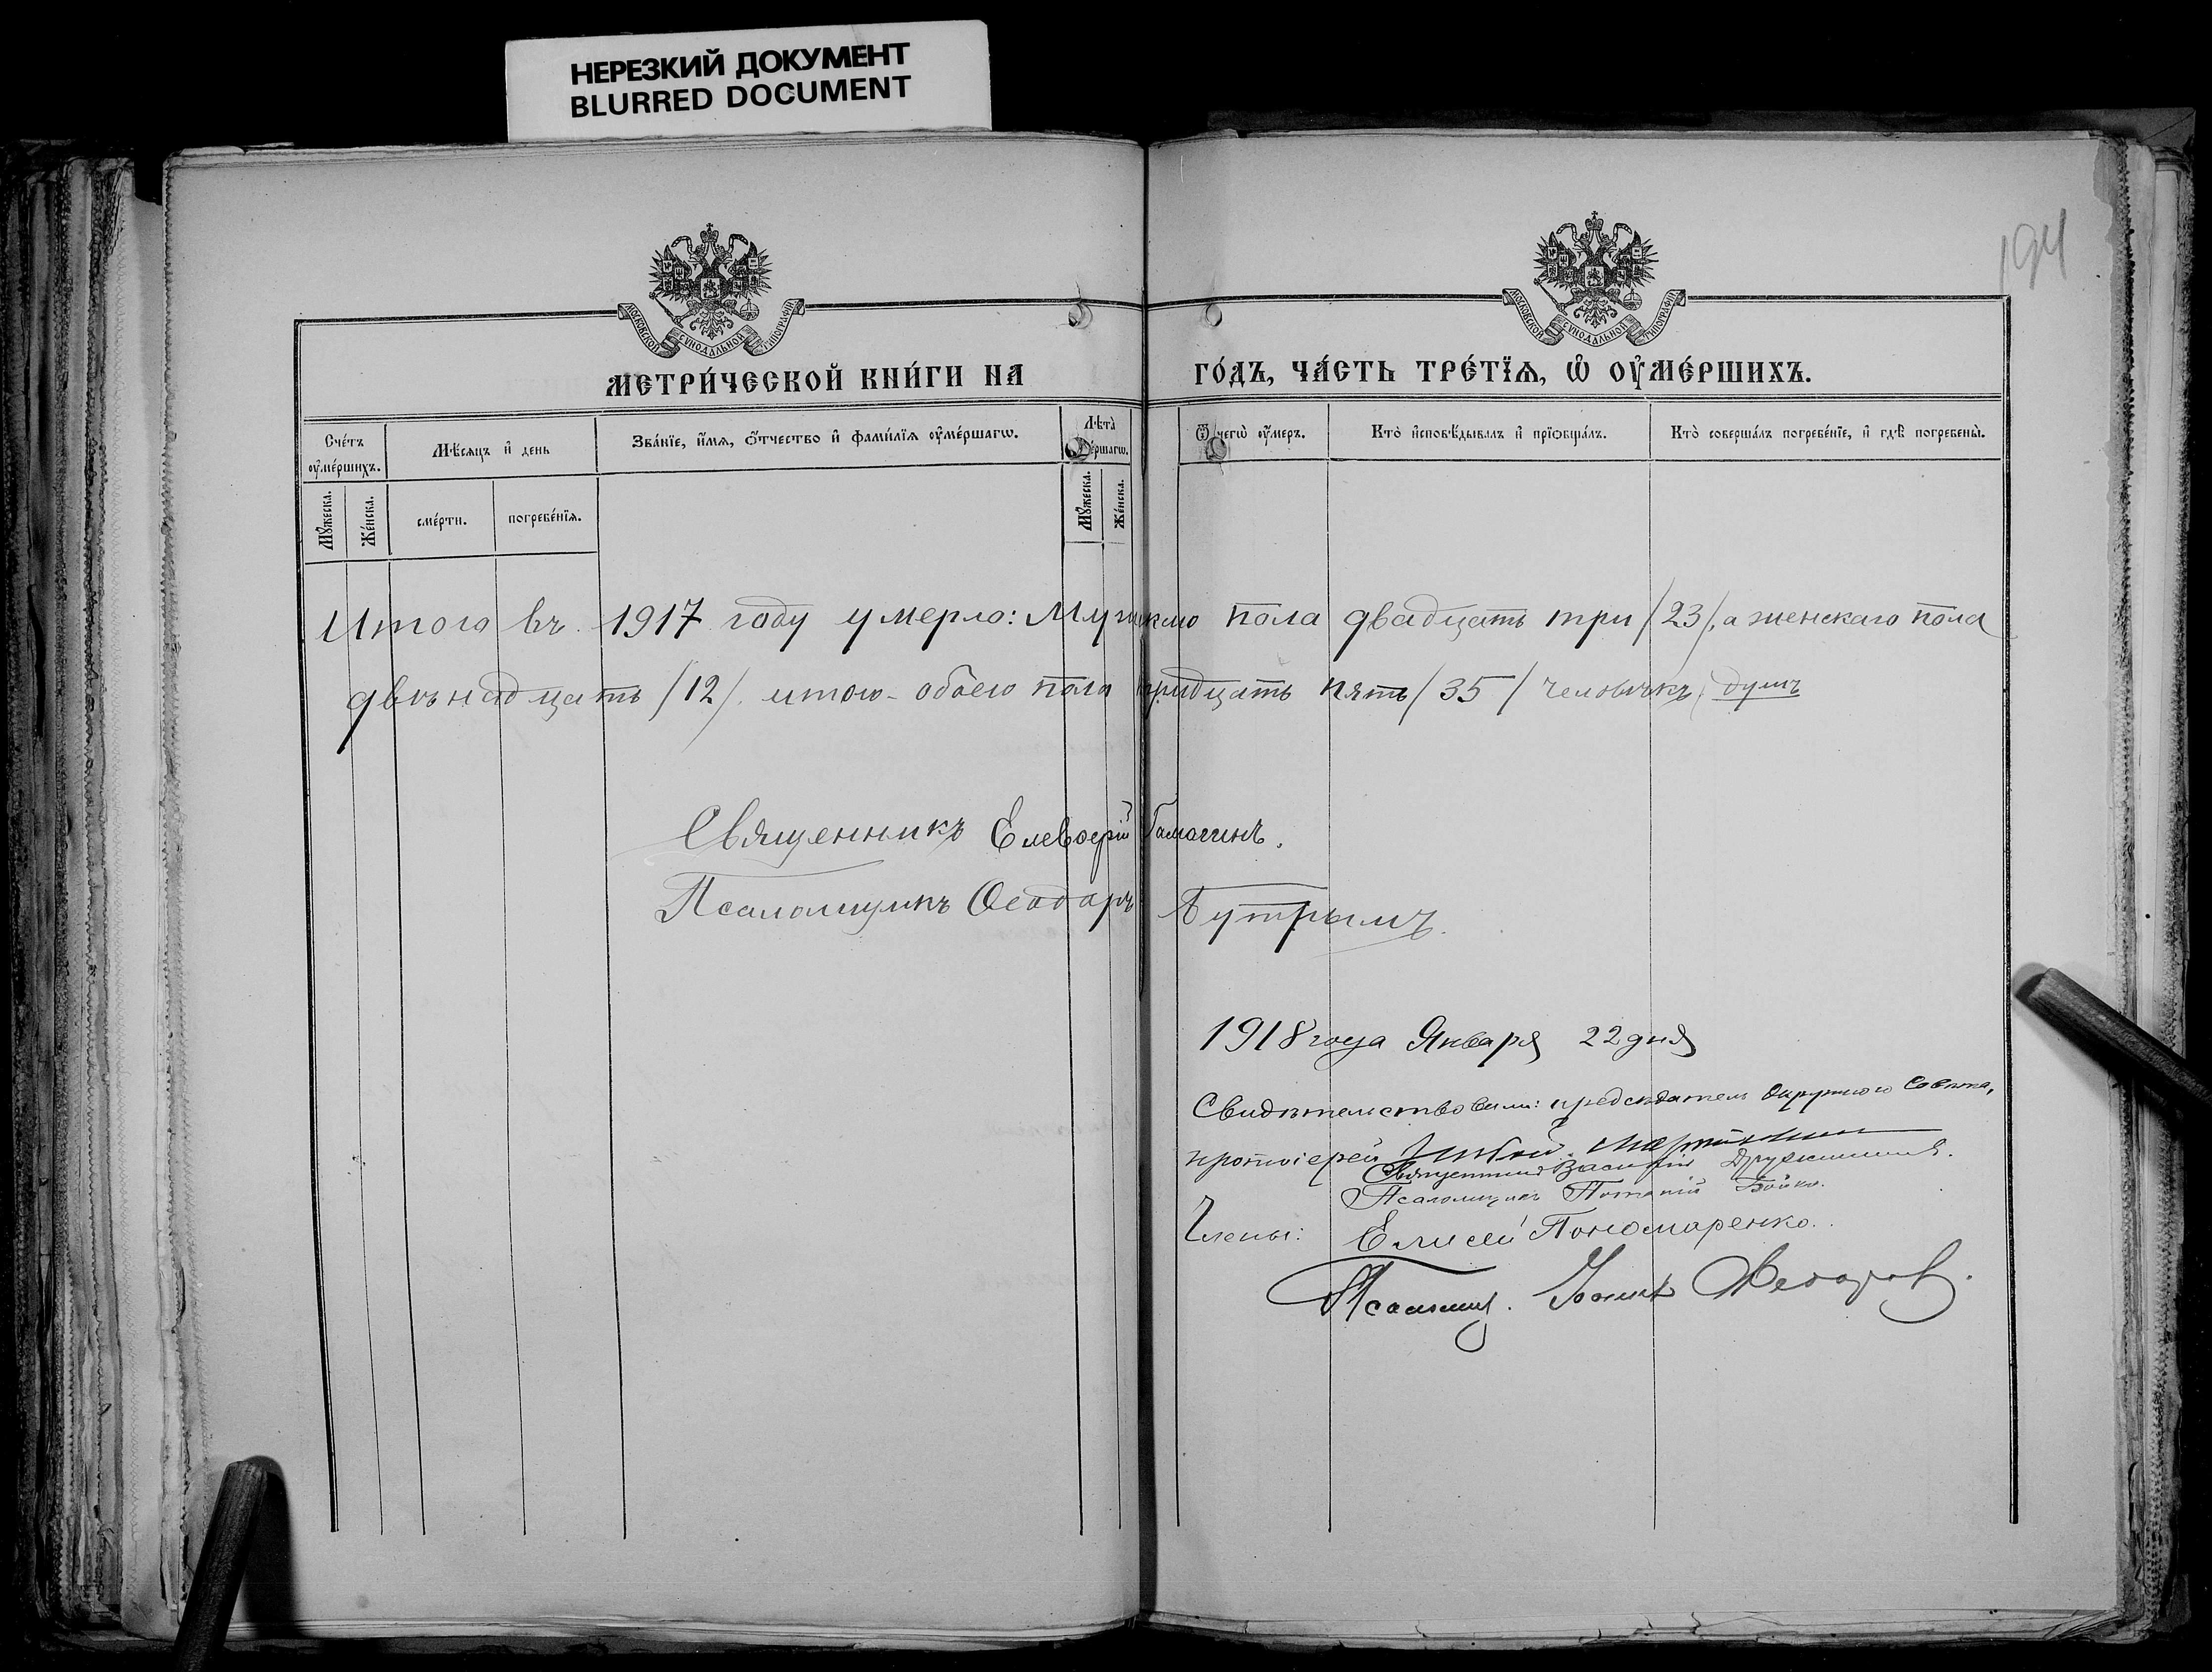 НЕРЕЗКИЙ ДОКУМЕНТ
BLURRED DOCUMENT
194
МОСКОВСКОЙ СѴНОДАЛЬНОЙ ТИПОГРАФІИ
МОСКОВСКОЙ СѴНОДАЛЬНОЙ ТИПОГРАФІИ
МЕТРИ́ЧЕСКОЙ КНИ́ГИ НА ГО́ДЪ, ЧА́СТЬ ТРЕ́ТЇѦ, Ѡ҆ ОУ҆МЕ́РШИХЪ.
Сче́тъ оу҆ме́ршихъ.
Мѣ́сѧцъ и҆ день
Зва́нїе, и҆́мѧ, ѻ҆́тчество и҆ фами́лїѧ оу҆ме́ршагѡ.
Лѣ́та
Ѿ чегѡ̀ оу҆́меръ.
Кто̀ и҆сповѣ́дывалъ и҆ прїѡбща́лъ.
Кто̀ соверша́лъ погребе́нїе, и҆ гдѣ̀ погребены̀.
Мꙋ́жеска.
Же́нска.
сме́рти.
погребе́нїѧ.
Мꙋ́жеска.
Же́нска.
Итого въ 1917 году умерло: Мужскаго пола двадцать три /23/, а женскаго пола
двѣнадцать /12/. итого - обоего пола тридцать пять /35/ человѣкъ душъ
Священникъ Елевѳерій
Псаломщикъ Ѳеодоръ Бутрымъ.
1918 года Января 22 дня
Свидѣтельствовали: предсѣдатель Окружного Совѣта,
протоіерей
Священникъ Василій
Псаломщикъ Потапій Бойко.
Члены: Елисей Пономаренко.
Псаломщ. Іоаннъ Ѳеодоров.